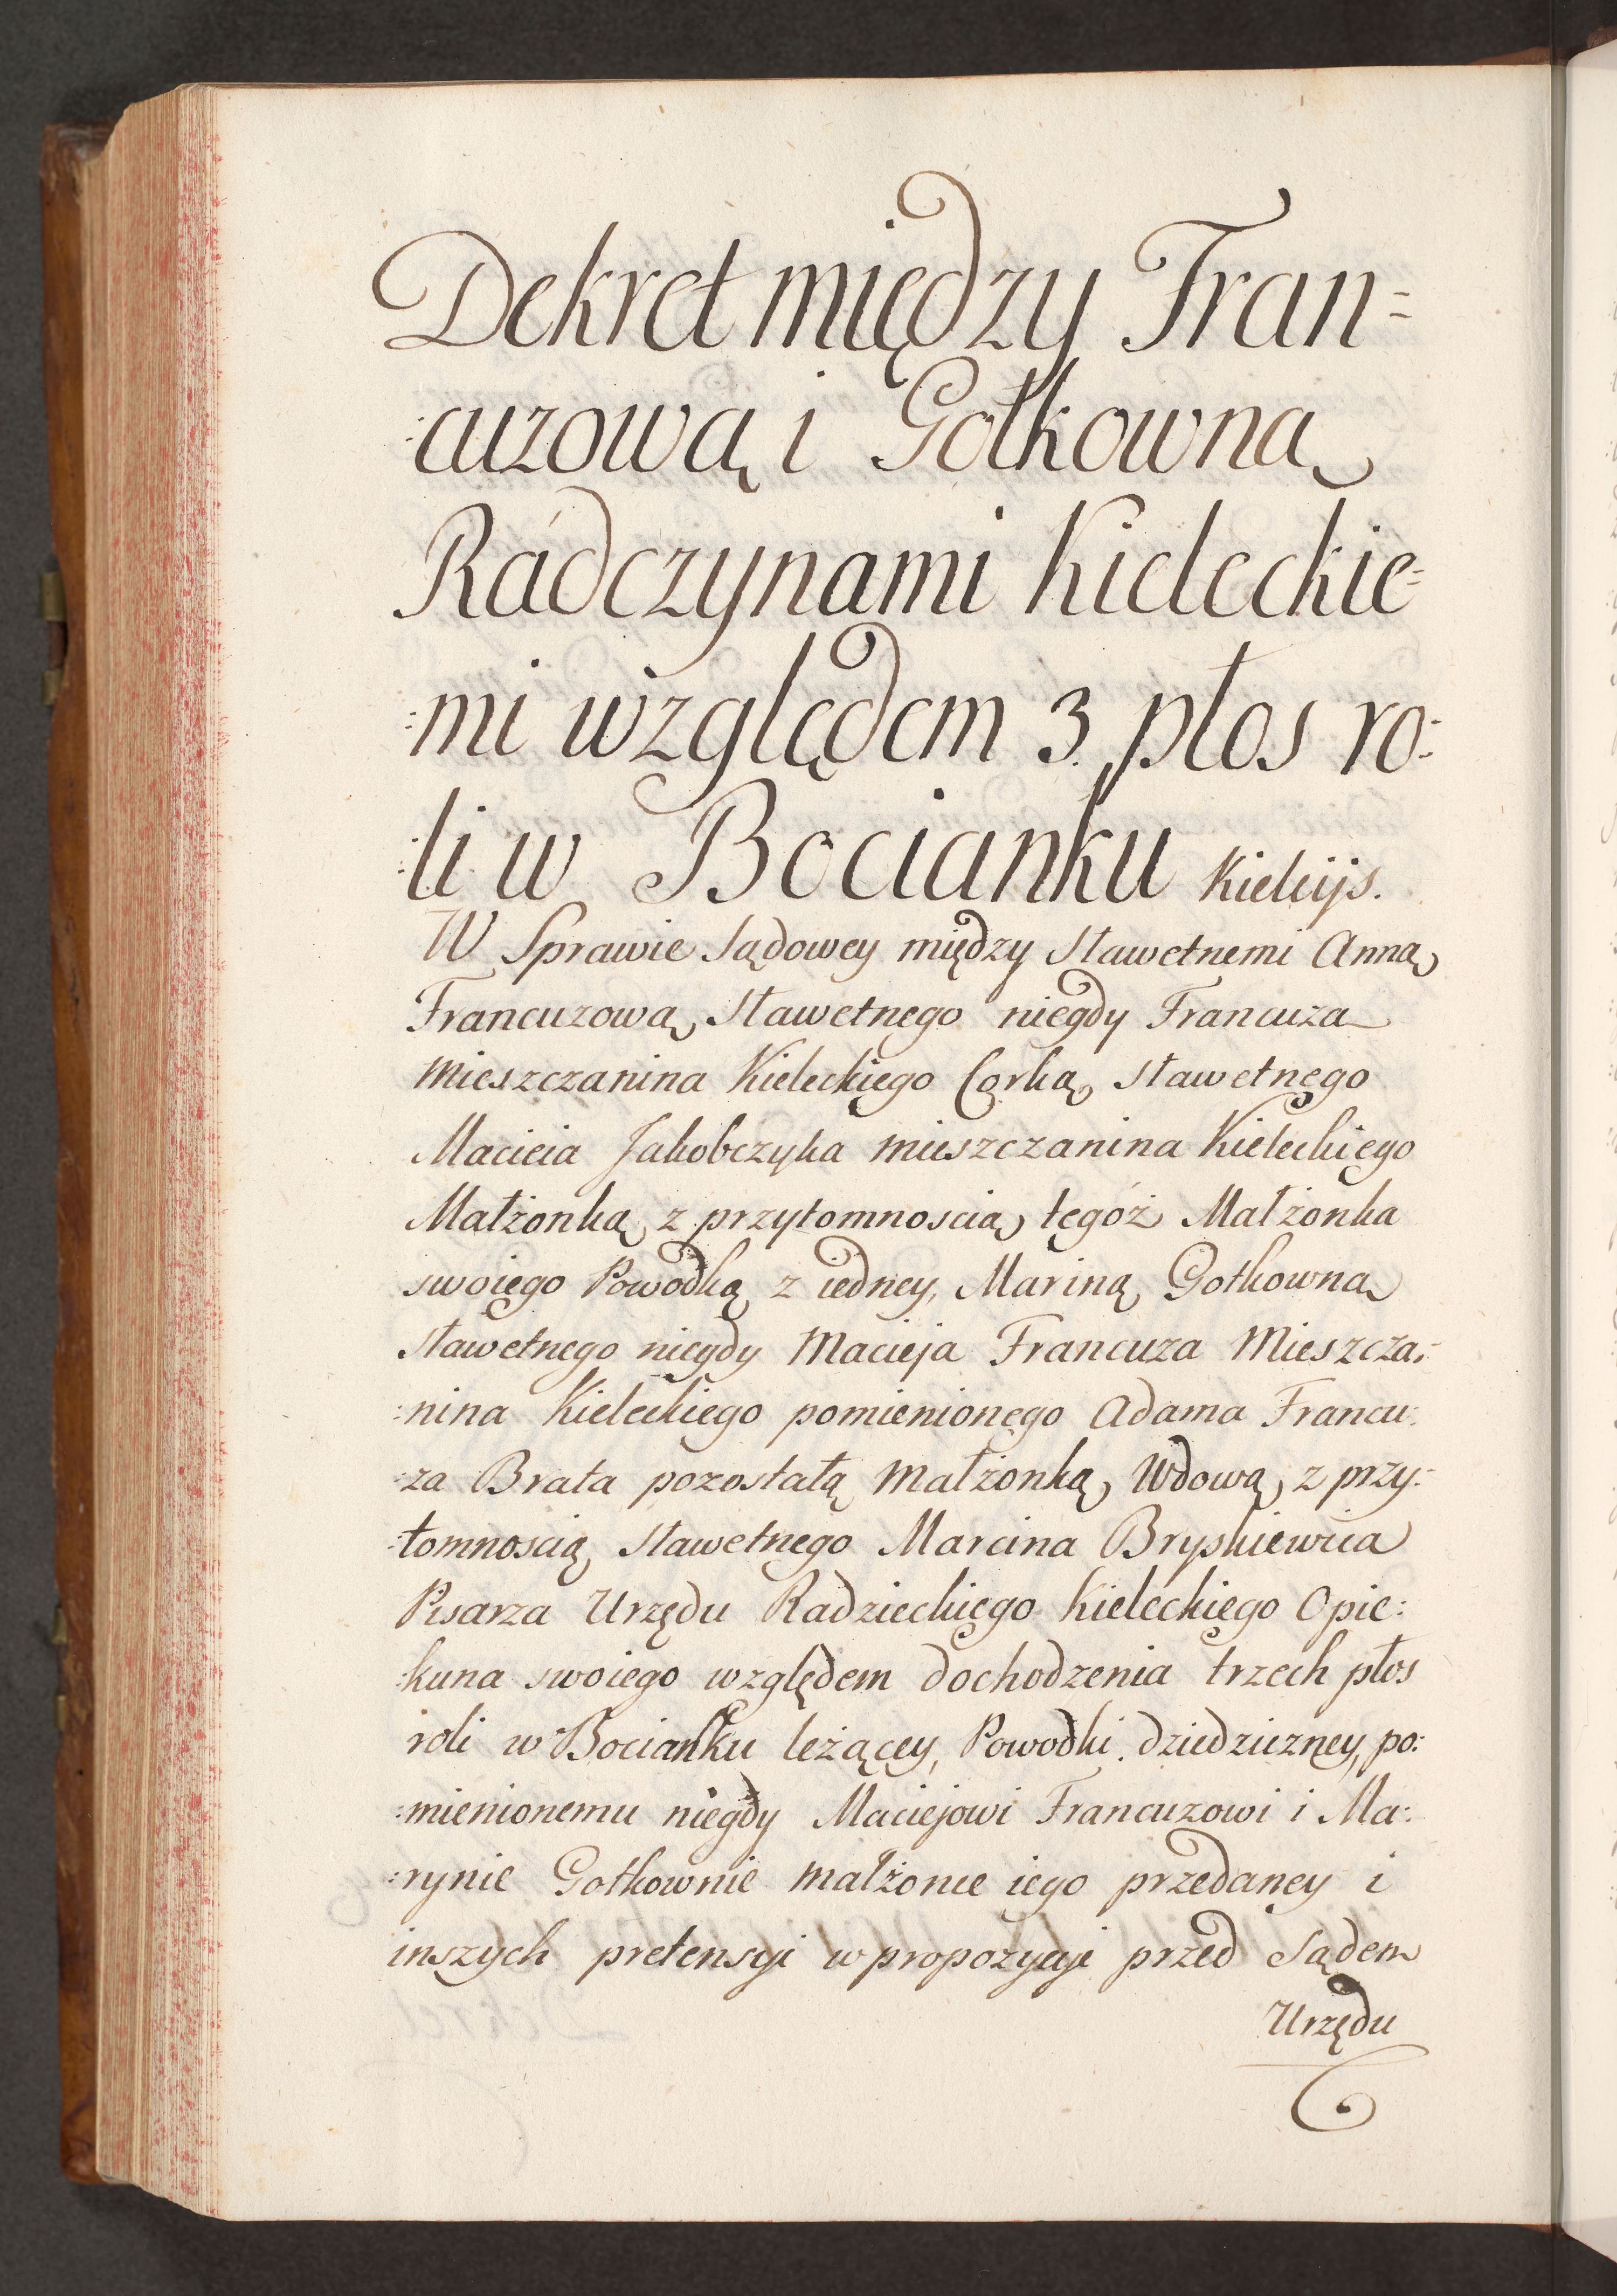 Dekret między Fran=
:cuzową i Gołkowną
Rádczynami Kieleckie=
:mi względem 3. płos ro:
:li w Bocianku Kielcijs.
W Sprawie Sądowey między Sławetnemi Anną
Francuzową, Sławetnego niegdy Francuza
Mieszczanina Kieleckiego Corką, Sławetnego
Macieia Jakobczyka Mieszczanina Kieleckiego
Małżonką, z przytomnoscią tegóż Małżonka
swoiego Powodką z iedney, Mariną Gołkowną
Sławetnego niegdy Macieja Francuza Mieszcza:
:nina Kieleckiego pomienionego Adama Francu:
:za Brata pozostałą Małżonką, Wdową, z przy:
:tomnoscią Sławetnego Marcina Bryskiewica
Pisarza Urzędu Radzieckiego Kieleckiego Opie:
:kuna swoiego względem dochodzenia trzech płos
roli w Bocianku leżącey, Powodki dziedziczney, po:
:mienionemu niegdy Maciejowi Francuzowi i Ma:
:rynie Gołkownie Małżonce iego przedaney i
inszych pretensyi w propozycyi przed Sądem
Urzędu